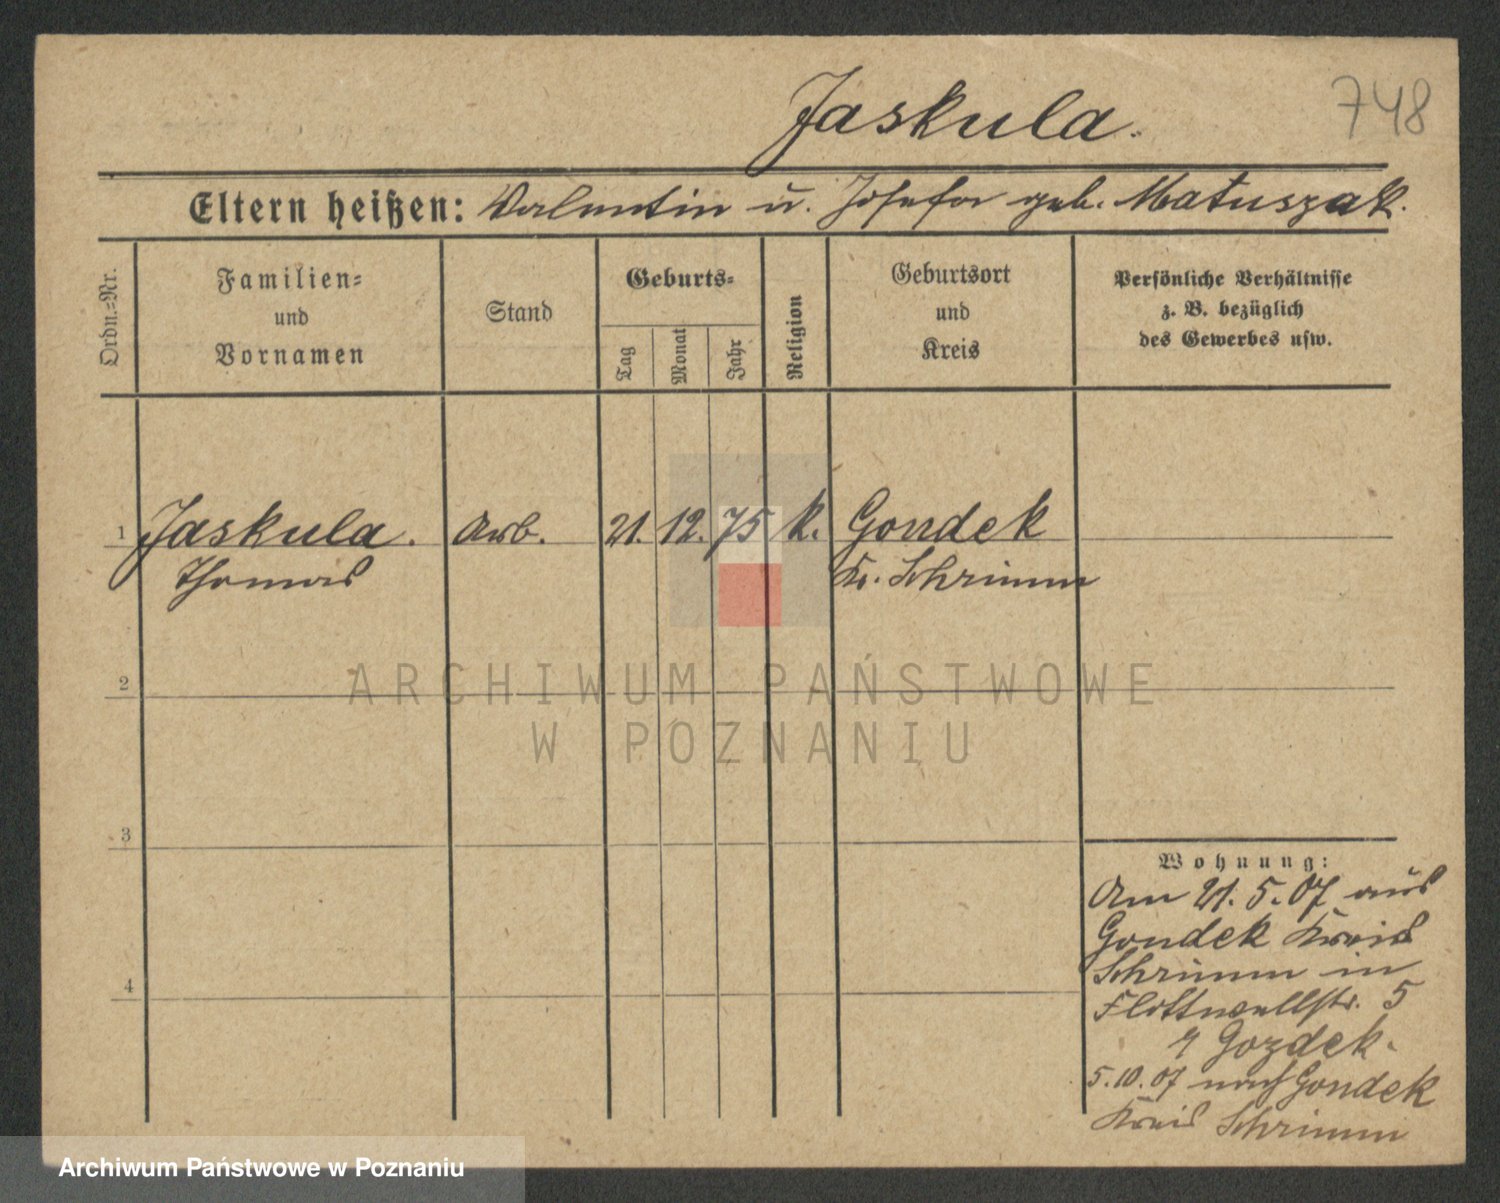 Jaskula.
748
Eltern heißen: Valentin u. Josefa geb. Matuszak.
Ordn.=Nr.
Familien=
und
Vornamen
Stand
Geburts=
Tag
Monat
Jahr
Religion
Geburtsort
und
Kreis
Persönliche Verhältnisse
z. B. bezüglich
des Gewerbes usw.
1 Jaskula. Arb. 21. 12. 75 k. Gondek
Thomas Kr. Schrimm
2
3
4
ARCHIWUM PAŃSTWOWE
W POZNANIU
Wohnung:
Am 21.5.07 aus
Gondek Kreis
Schrimm in
Flottwellstr. 5
Gozdek.
5.10.07 nach Gondek
Kreis Schrimm
Archiwum Państwowe w Poznaniu